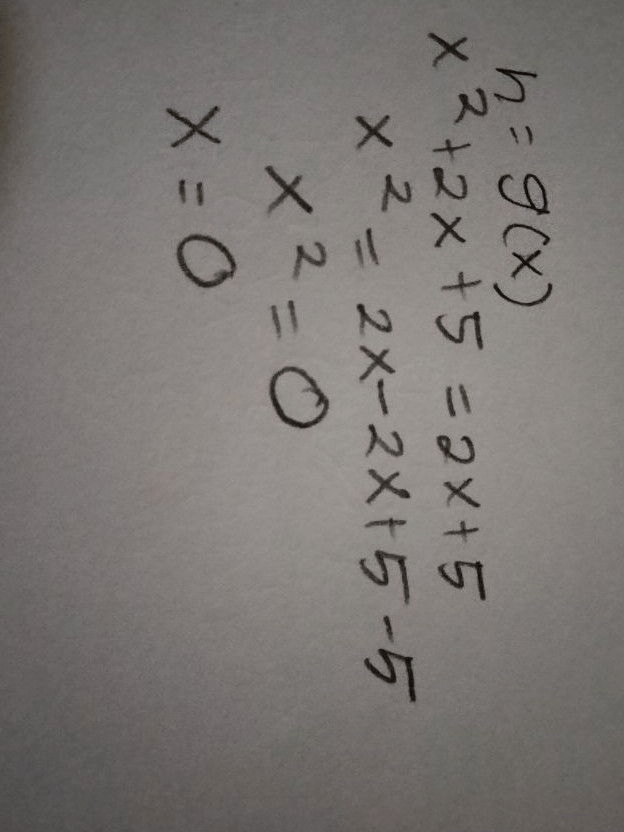 h = g(x)
x² + 2x + 5 = 2x + 5
x² = 2x - 2x + 5 - 5
x² = 0
x = 0